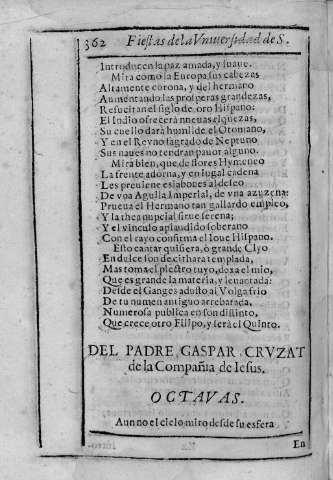 362 Fiestas de la Vniuersidad de S.
Introducen la paz amada, y suaue.
Mira como la Europa sus cabezas
Altamente corona, y del hermano
Aumentando las prosperas grandezas,
Resucitan el siglo de oro Hispano:
El Indio ofrecerà nueuas riquezas,
Su cuello darà humilde el Otomano,
Y en el Reyno sagrado de Neptuno
Sus naues no tendran pauor alguno.
Mira bien, que de flores Hymeneo
La frente adorna, y en jugal cadena
Les preuiene eslabones al deseo
De vna Aguila Imperial, de vna azuzena:
Prueua el Hermano tan gallardo empleo,
Y la thea nupcial sirue serena;
Y el vinculo aplaudido soberano
Con el rayo confirma el Ioue Hispano.
Esto cantar quisiera, ò grande Clyo
En dulce son de cithara templada,
Mas toma el plectro tuyo, dexa el mio,
Que es grande la materia, y leuantada:
Desde el Ganges adusto al Volga frio
De tu numen antiguo arrebatada,
Numerosa publica en son distinto,
Que crece otro Filipo, y serà el Quinto.
DEL PADRE GASPAR CRVZAT
de la Compañia de Iesus.
OCTAVAS.
Aun no el cielo miro desde su esfera
En